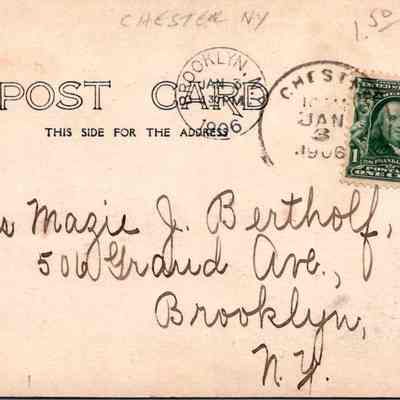 CHESTER NY
1.50
POST CARD
THIS SIDE FOR THE ADDRESS
BROOKLYN, N.
JAN 3
1906
CHEST
JAN
3
1906
1
Mazie J. Bertholf,
506 Grand Ave.,
Brooklyn,
N.Y.